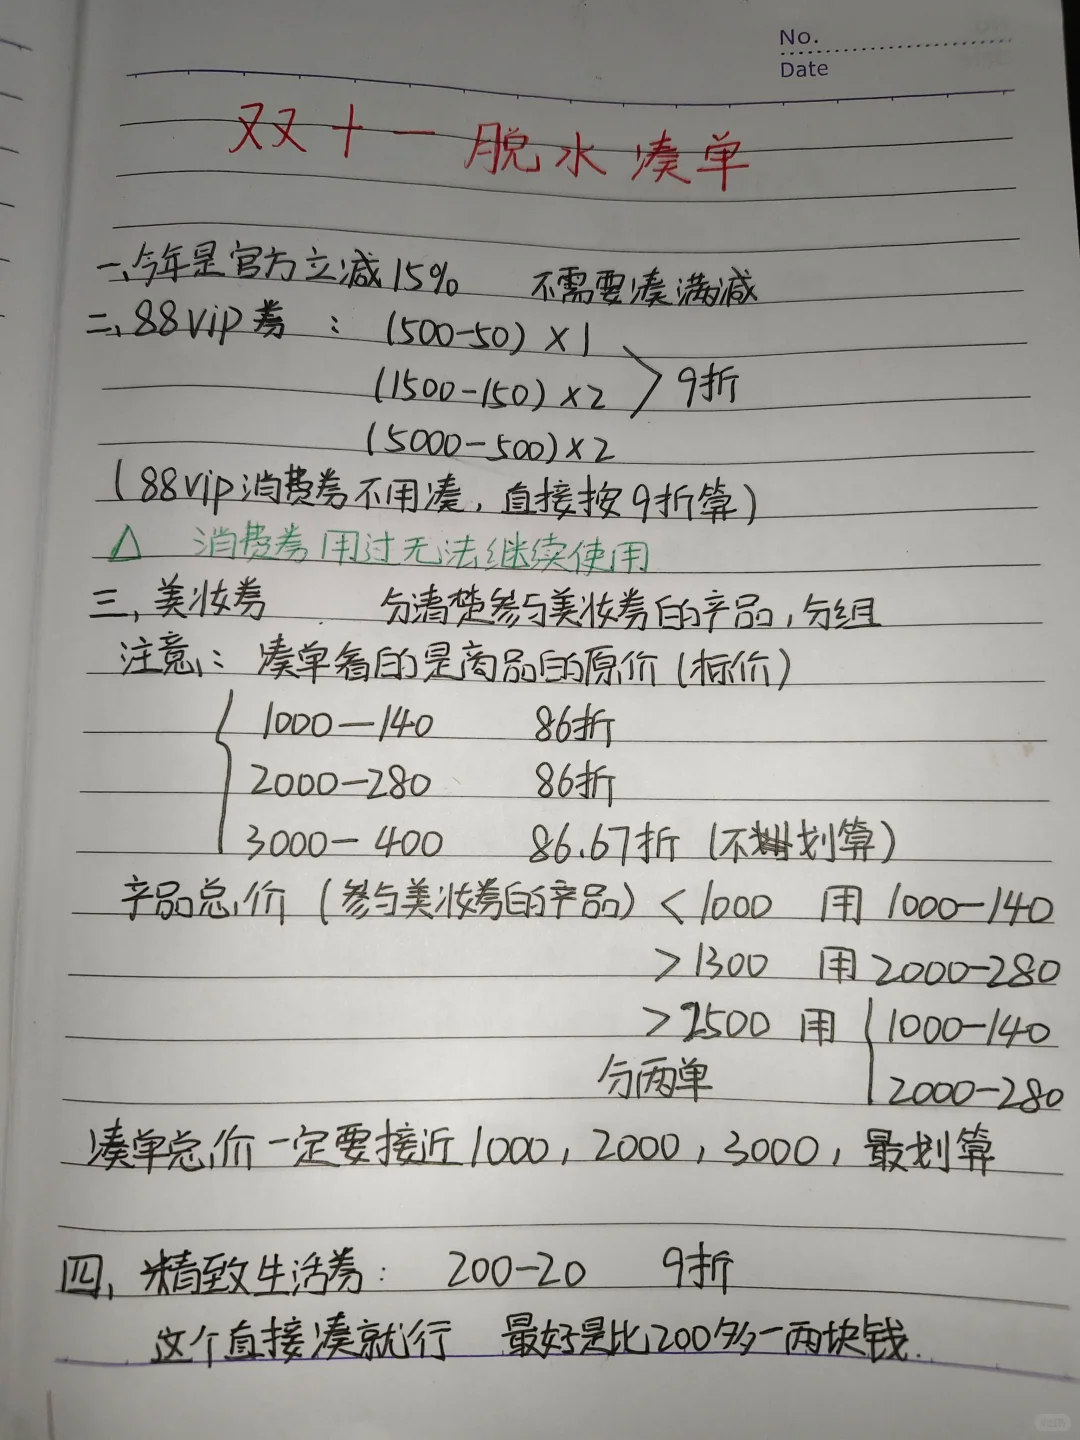 No.
Date
双十一脱水凑单
一、今年是官方立减15% 不需要凑满减
二、88vip券：(500-50)×1
(1500-150)×2 9折
(5000-500)×2
(88vip消费券不用凑，直接按9折算)
△ 消费券用过无法继续使用
三、美妆券 分清楚参与美妆券的产品，分组
注意：凑单看的是商品的原价(标价)
1000-140 86折
2000-280 86折
3000-400 86.67折(不划算)
产品总价(参与美妆券的产品)<1000 用1000-140
>1300 用2000-280
>2500 用 1000-140
分两单 2000-280
凑单总价一定要接近1000，2000，3000，最划算
四、精致生活券：200-20 9折
这个直接凑就行 最好是比200多一两块钱.